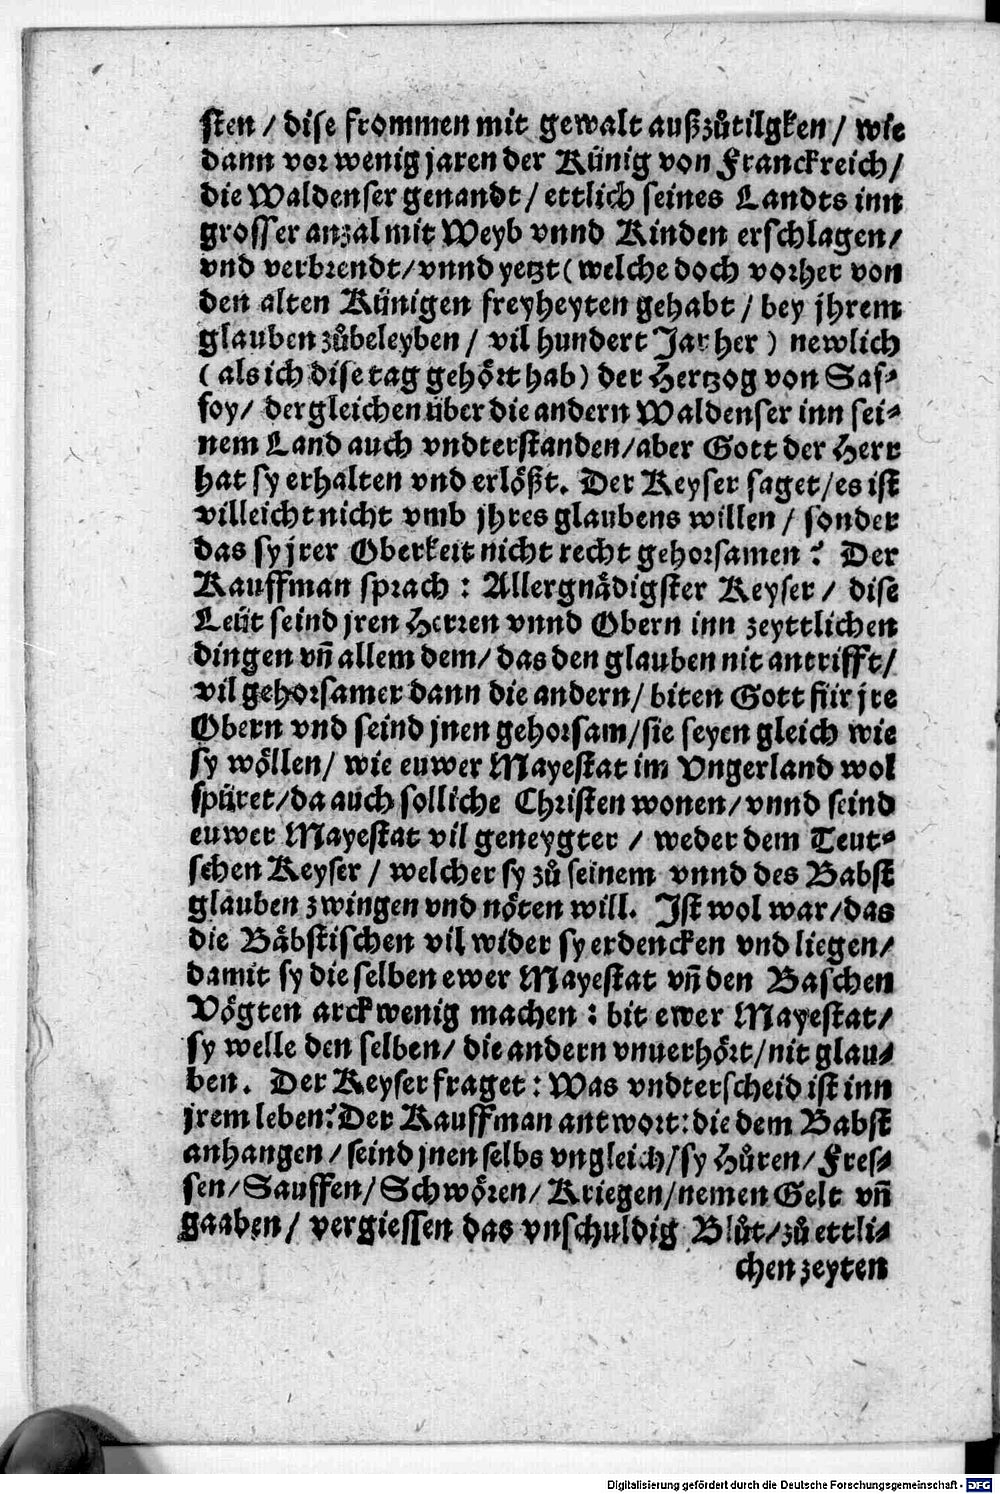 sten / dise frommen mit gewalt außzůtilgken / wie
dann vor wenig jaren der Künig von Franckreich /
die Waldenser genandt / ettlich seines Landts inn
grosser anzal mit Weyb vnnd Kinden erschlagen /
vnd verbrendt / vnnd yetzt ( welche doch vorher von
den alten Künigen freyheyten gehabt / bey jhrem
glauben zůbeleyben / vil hundert Jar her ) newlich
( als ich dise tag gehört hab ) der Hertzog von Saf-
foy / dergleichen über die andern Waldenser inn sei-
nem Land auch vndterstanden / aber Gott der Herr
hat sy erhalten vnd erlößt. Der Keyser saget / es ist
villeicht nicht vmb jhres glaubens willen / sonder
das sy jrer Oberkeit nicht recht gehorsamen ? Der
Kauffman sprach : Allergnädigster Keyser / dise
Leüt seind jren Herren vnnd Obern inn zeyttlichen
dingen vñ allem dem / das den glauben nit antrifft /
vil gehorsamer dann die andern / biten Gott für jre
Obern vnd seind jnen gehorsam / sie seyen gleich wie
sy wöllen / wie euwer Mayestat im Vngerland wol
spüret / da auch solliche Christen wonen / vnnd seind
euwer Mayestat vil geneygter / weder dem Teut-
schen Keyser / welcher sy zů seinem vnnd des Babst
glauben zwingen vnd nöten will. Ist wol war / das
die Bäbstischen vil wider sy erdencken vnd liegen /
damit sy die selben ewer Mayestat vñ den Baschen
Vögten arckwenig machen : bit ewer Mayestat /
sy welle den selben / die andern vnuerhört / nit glau-
ben. Der Keyser fraget : Was vndterscheid ist inn
jrem leben? Der Kauffman antwort : die dem Babst
anhangen / seind jnen selbs vngleich / sy Hůren / Fres-
sen / Sauffen / Schwören / Kriegen / nemen Gelt vñ
gaaben / vergiessen das vnschuldig Blůt / zů ettli-
chen zeyten
Digitalisierung gefördert durch die Deutsche Forschungsgemeinschaft - DFG